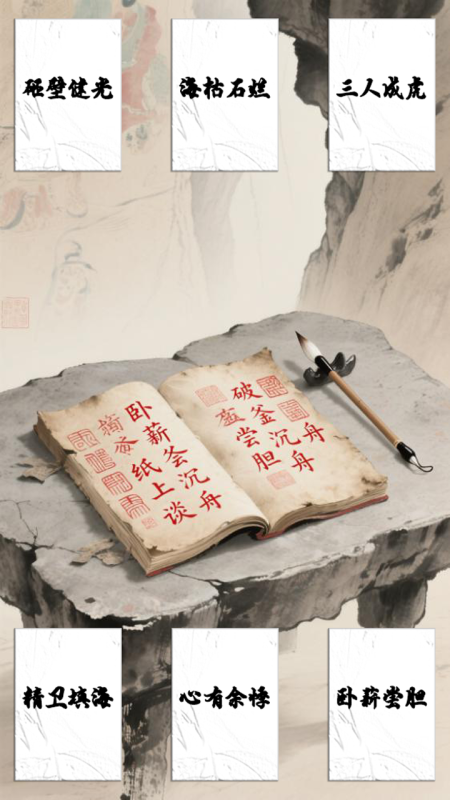 砸壁健光
海枯石烂
三人成虎
破釜沉舟
尝胆舟
卧薪釜沉舟
纸上谈
精卫填海
心有余悸
卧薪尝胆